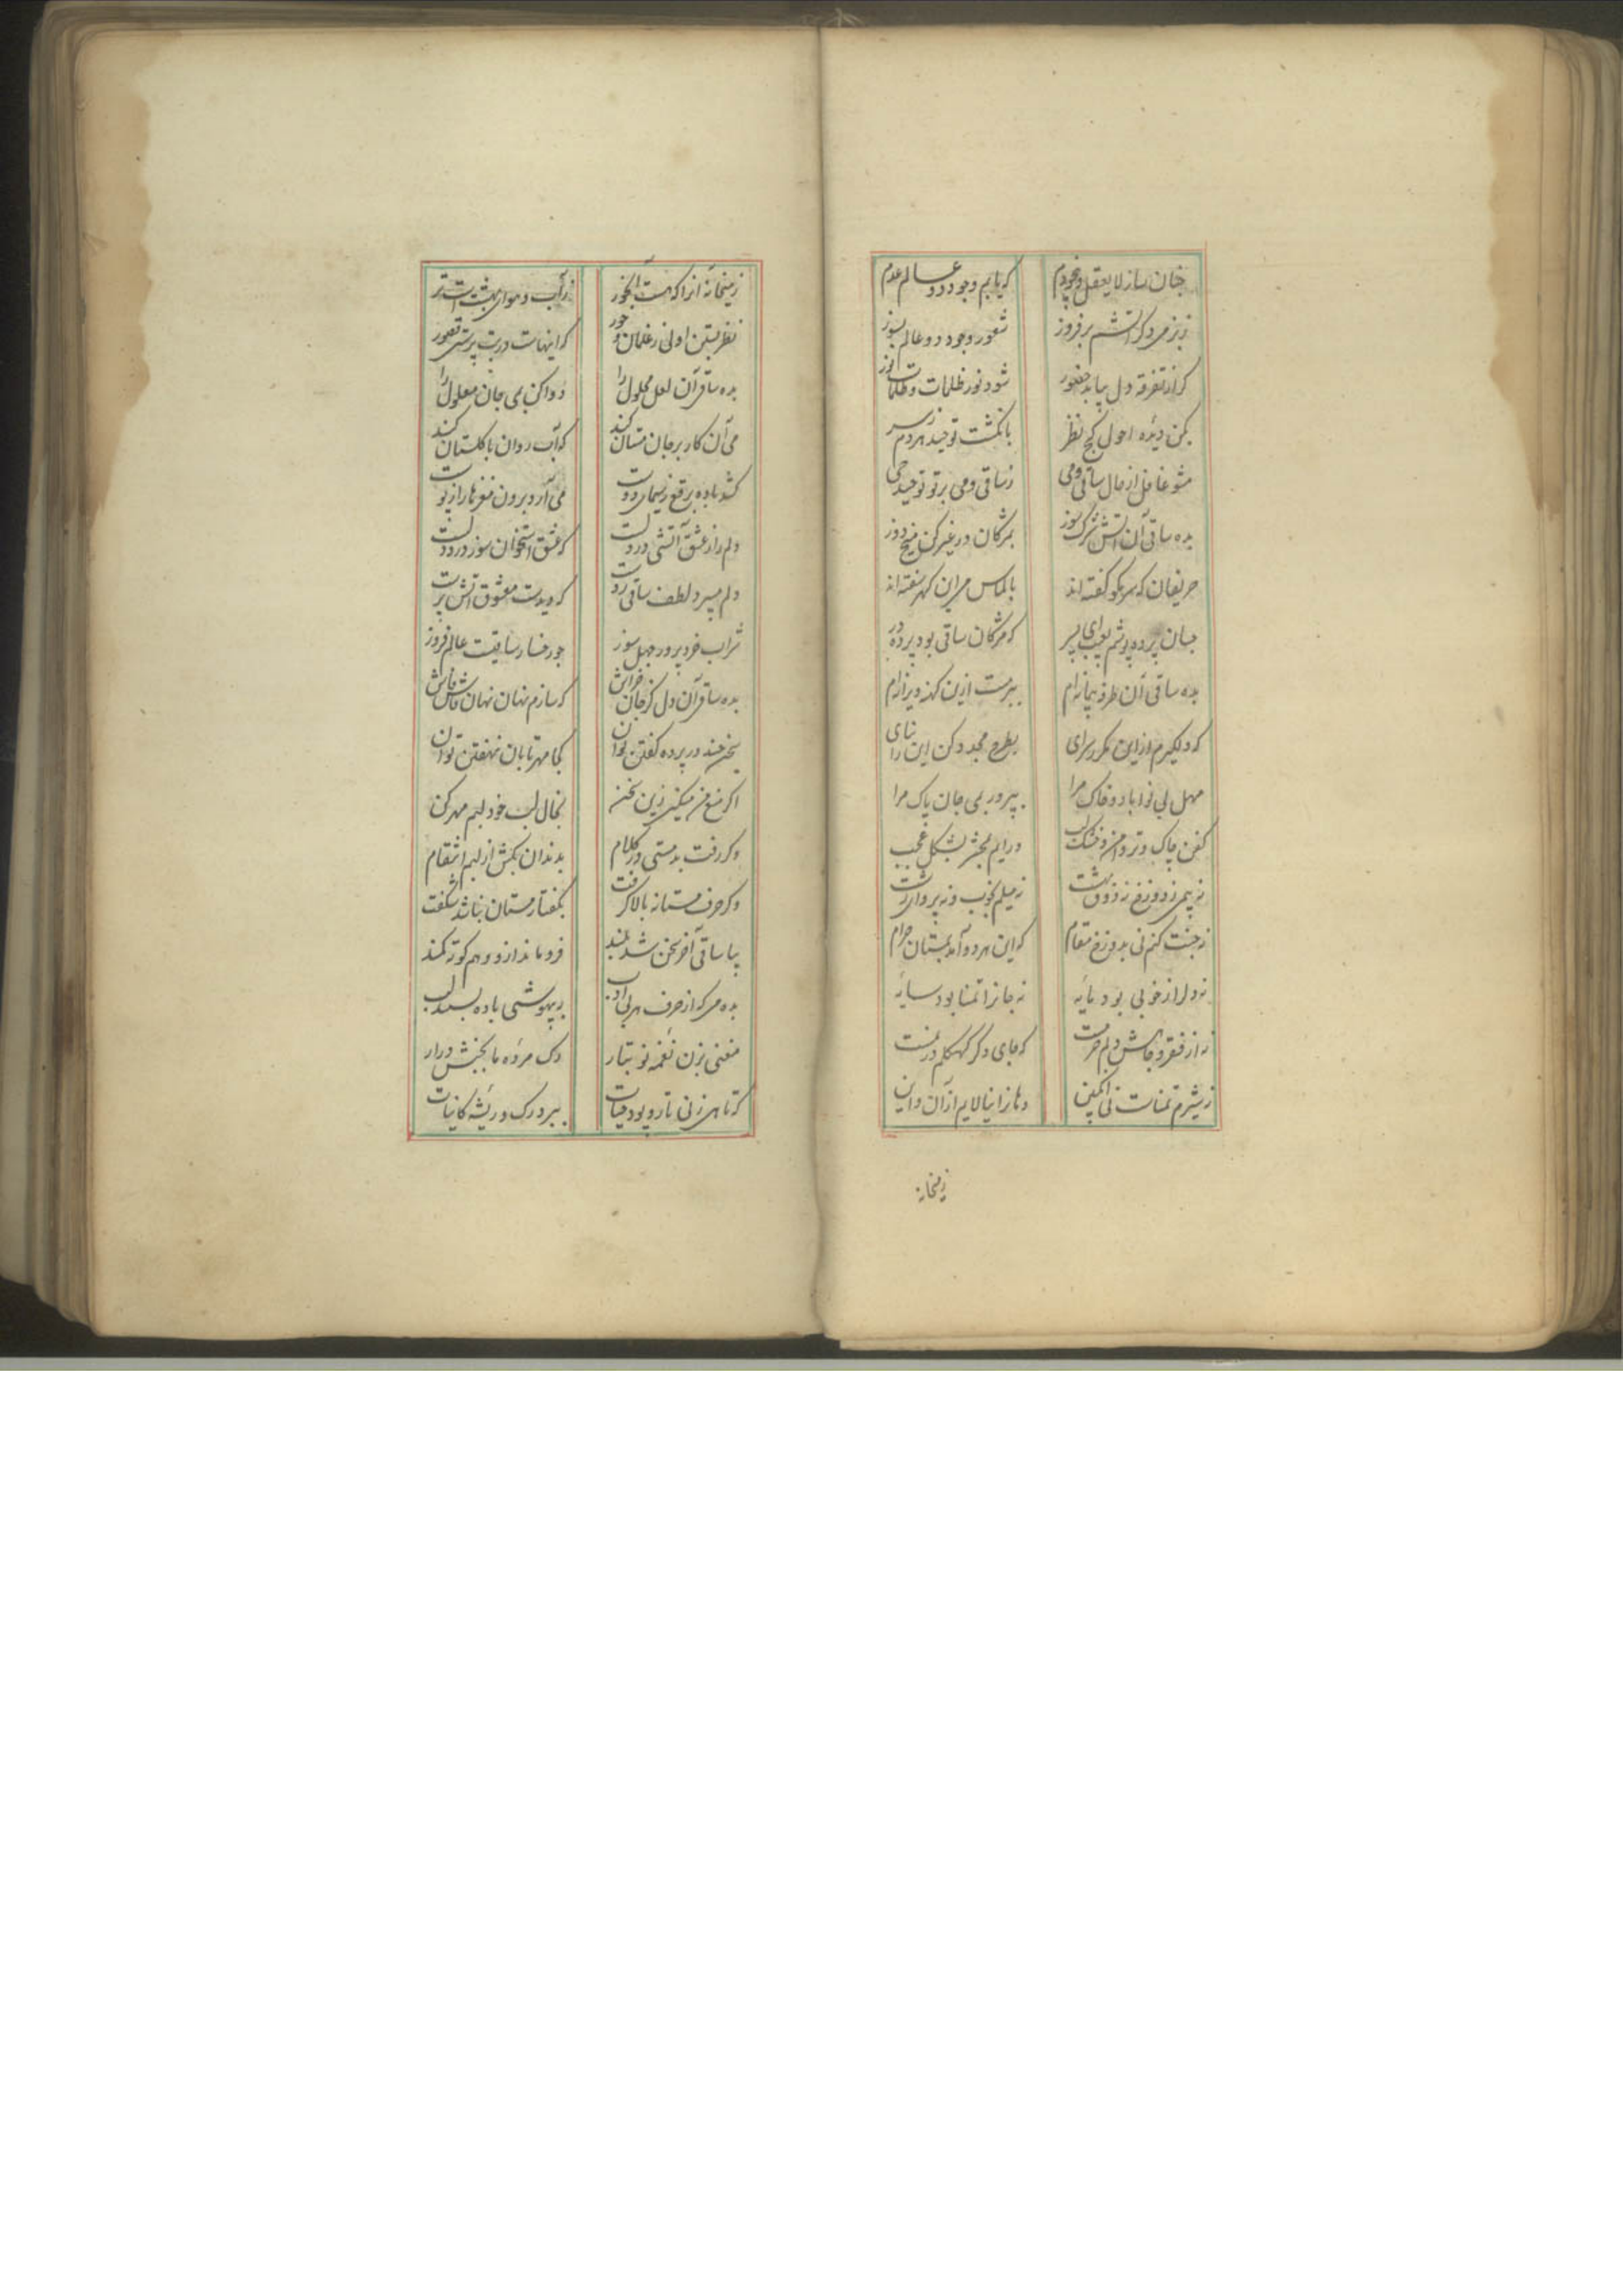 چنان ساز لایعقل و بیخودم که یابم وجود دو عالم عدم
بزم دگر آتشم برفروز شعور وجود دو عالم بسوز
کز تفرقه دل بیابد حضور شود نور ظلمات و ظلمات نور
بکن دیده احول کج نظر بانگشت توحید هردم ز سر
مشو غافل از حال ساقی و می ز ساقی و می پرتو توحید حی
بده ساقی آن آتش شرک سوز بمژگان در غیر کن میخ دوز
حریفان که سر مگو گفته اند بالماس می این گهر سفته اند
بسان پرده پوشم ای پسر که مژگان ساقی بود پرده در
بده ساقی آن طرفه پیمانه ام ببر مست ازین کهنه ویرانه ام
که دلگیرم از این مکرر سرای بطرح مجدد کن این را بنای
مهل بی نوا باد و خاک مرا بپرور بمی جان پاک مرا
کفن چاک و تر دامن و خشک لب درایم بمحشر بشکل عجب
نه بیمی ز دوزخ نه ذوق بهشت نه میلم بخوب و نه پروای زشت
نه جنت کنم نی بدوزخ مقام که این هر دو آمد بمستان حرام
نه دل را ز خوبی بود مایه نه جانرا تمنا بود سایه
نه از فقر و فاقه دلم که جای دگر
نه شیرم تمناست نی انگبین دهانرا نیالایم از آن و این
ز میخانه
ز میخانه آنرا که هست آبخور ز آب و هوای بهشتست تر
نظر بستن اولی ز غلمان و حور که اینهاست در بت پرستی قصور
بده ساقی آن لعل محلول را دوا کن بمی جان معلول را
می آن کار بر جان مستان کند که آب روان با گلستان کند
کشد باده برقع ز سیمای دوست می آرد برون مغزها را ز پوست
دلم را ز عشق آتشی در دلست که عشق استخوان سوز درد دلست
دلم میبرد لطف ساقی ز دست که دیدست معشوق آتش پرست
شراب خرد پرور جهل سوز چو رخسار ساقیست عالم فروز
بده ساقی آن دل کز جان خراش که سازم نهان نهان فاش فاش
سخن چند در پرده گفتن توان کجا مهر تابان نهفتن توان
اگر منع من میکنی زین سخن بخال لب خود لبم مهر کن
وگر رفت بدمستی در کلام بدندان بکش از لبم انتقام
وگر حرف مستانه بالا گرفت بگفتار مستان نباشد شگفت
بیا ساقی آخر سخن شد بلند فروماند ازو وهم کوته کمند
بده می که از حرف هر بی ادب ببیهوشی باده بسته لب
مغنی بزن نغمه نو بتار رگ مرده ما بجنبش درار
که تا می زنی تار و پود حیات ببرد رگ و ریشه کاینات